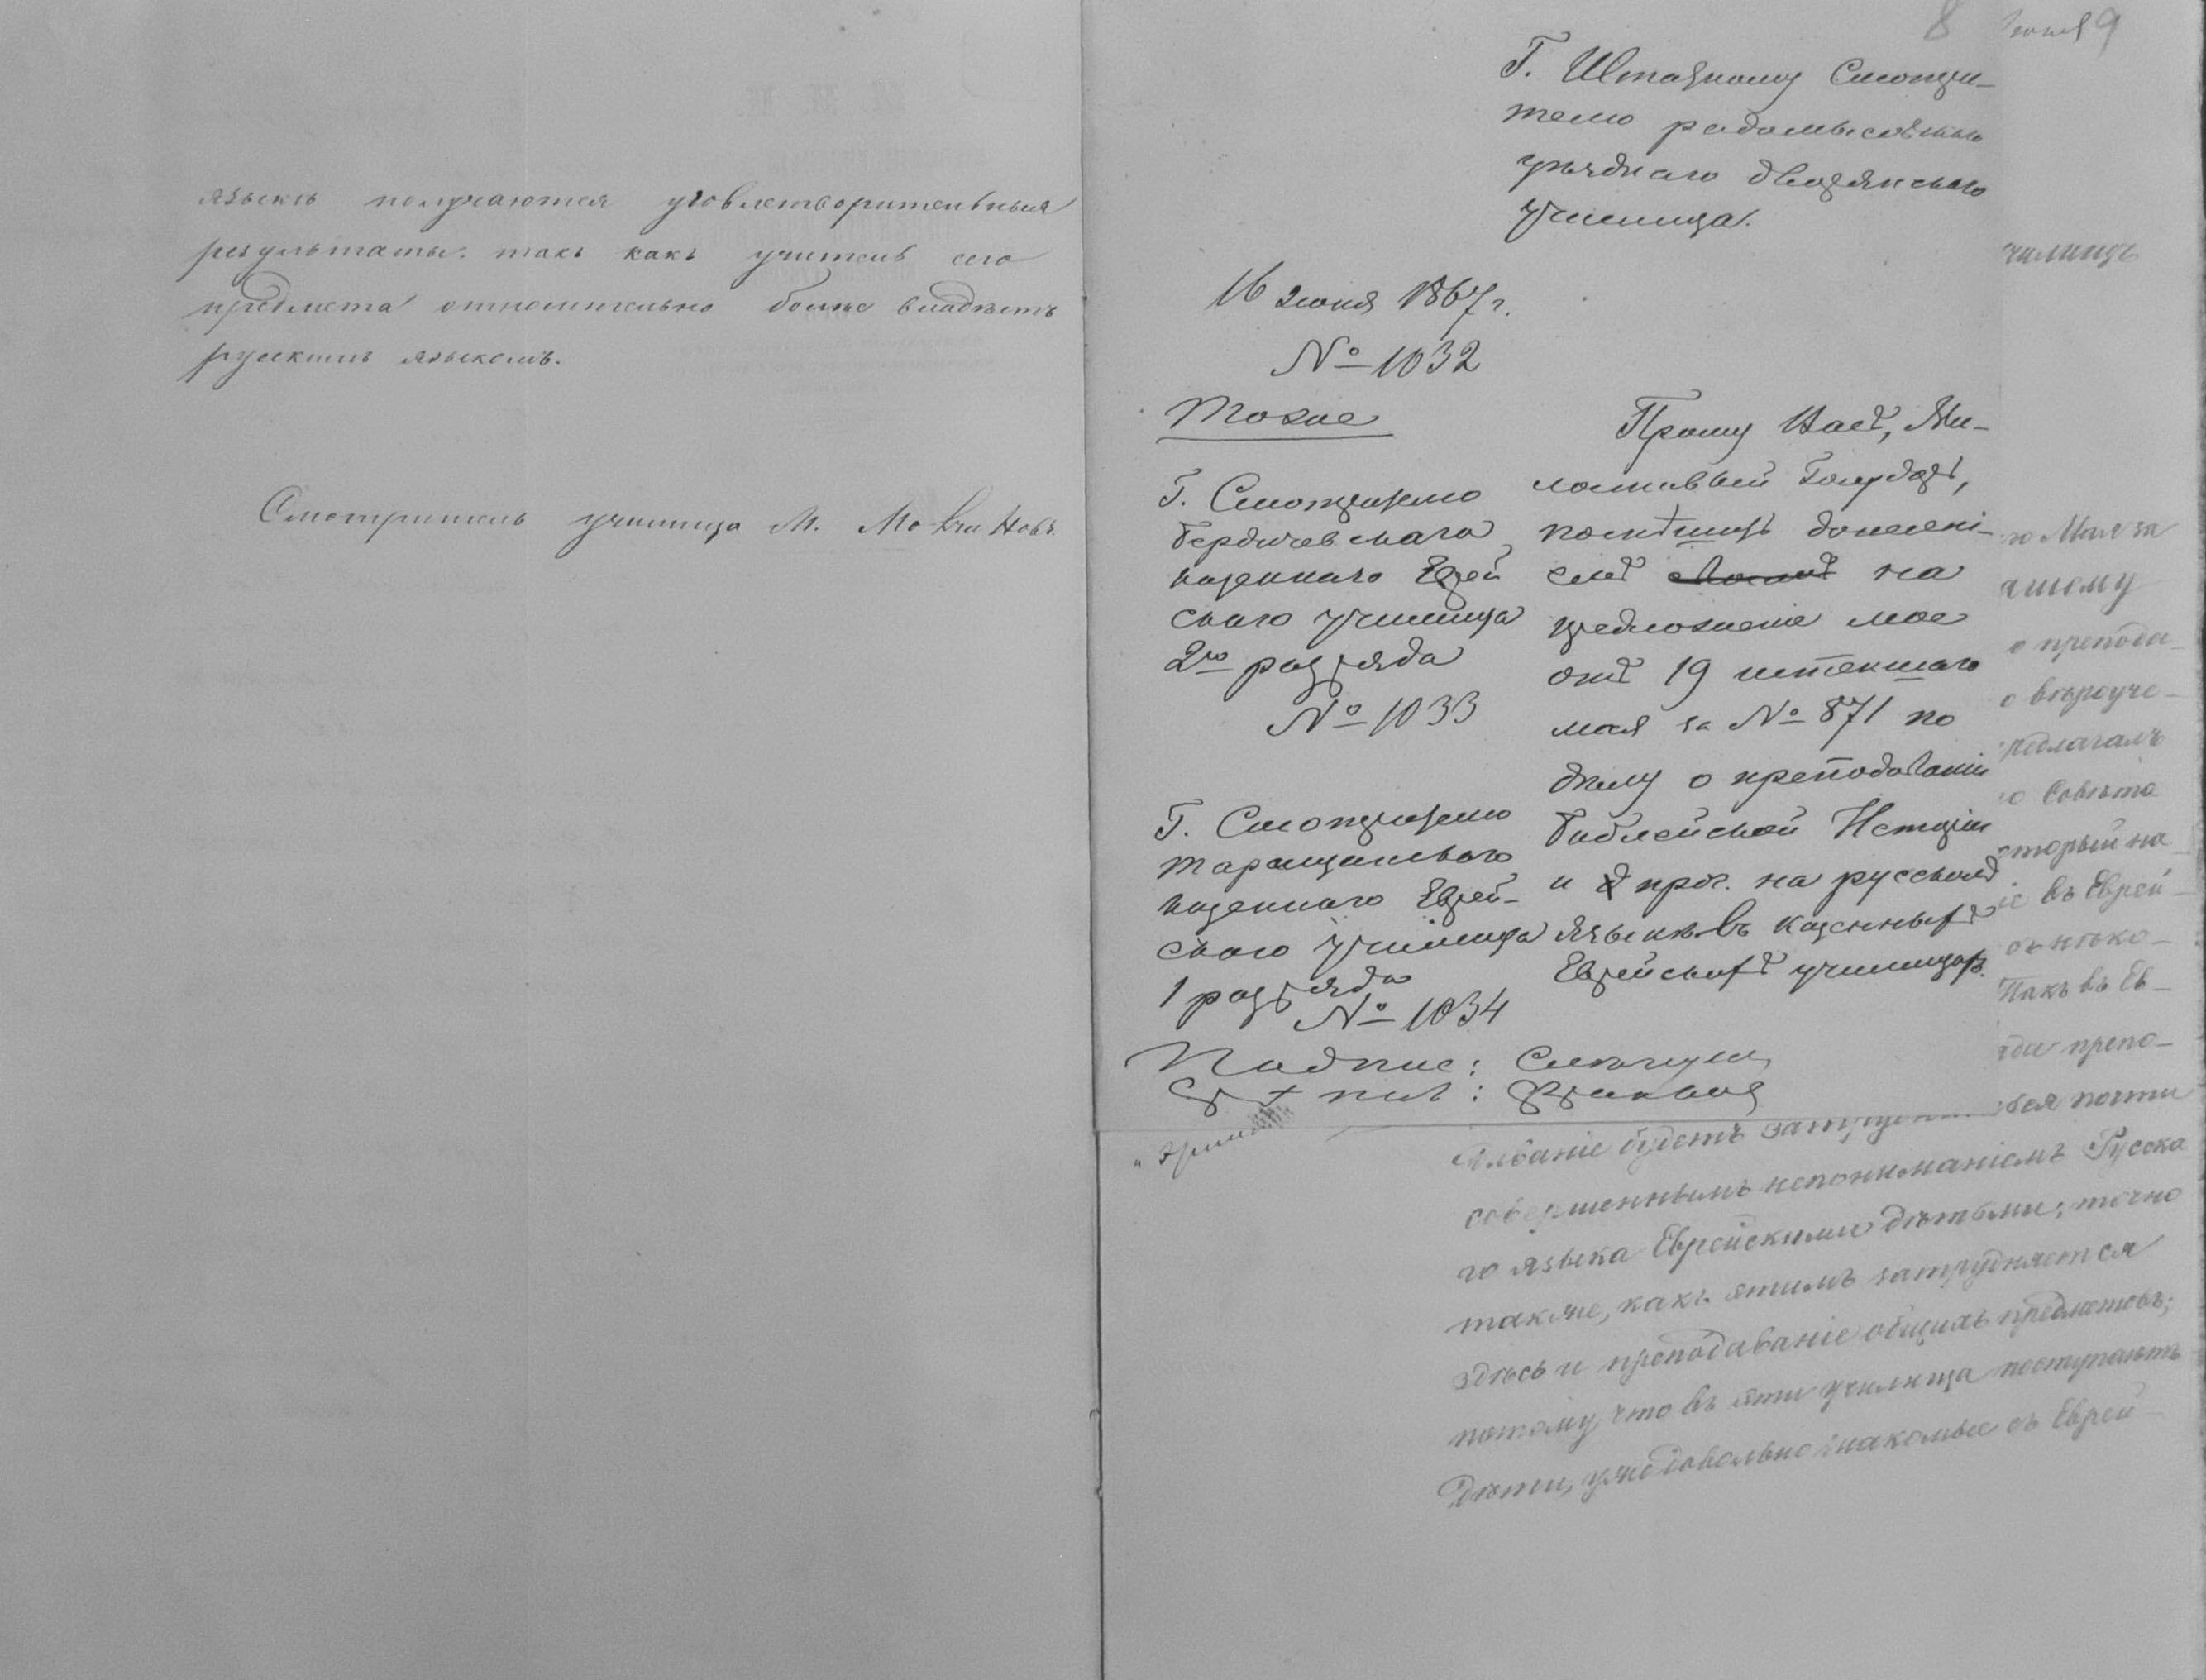 языкѣ получаются удовлетворительныя
результаты. такъ какъ учитель сего
предмета относительно болѣе владѣетъ
русскимъ языкомъ.
Смотритель училища М.
8
9
Г. Штатному Смотри-
телю радомысльскаго
уѣзднаго дворянскаго
училища.
16 Іюня 1867 г.
№ 1032
Тоже
Г. Смотрителю
Бердичевскаго
казеннаго Еврей
скаго училища
2го разряда
№ 1033
Г. Смотрителю
таращанскаго
казеннаго Еврей-
скаго училища
1 разряда
№ 1034
Прошу Васъ, Ми-
лостивый Государь,
поспѣшить донесені-
емъ на
предложеніе мое
отъ 19 истекшаго
мая за № 871 по
дѣлу о преподаваніи
Библейской Исторіи
и проч. на русскомъ
языкѣ въ казенныхъ
Еврейскихъ училищахъ.
Подпис:
чилищъ
го Мая за
ашему
о препода-
о вѣроуче-
редлагалъ
о Совѣта
оторый на
іе въ Еврей-
онько-
Такъ въ Ев-
да препо-
ься почти
даваніе будетъ
совершеннымъ непониманіемъ Русска
го языка Еврейскими дѣтьми; точно
также, какъ этимъ затрудняется
здѣсь и преподаваніе общихъ предметовъ;
потому, что въ эти училища поступаютъ
дѣти, уже довольно знакомые съ Еврей-